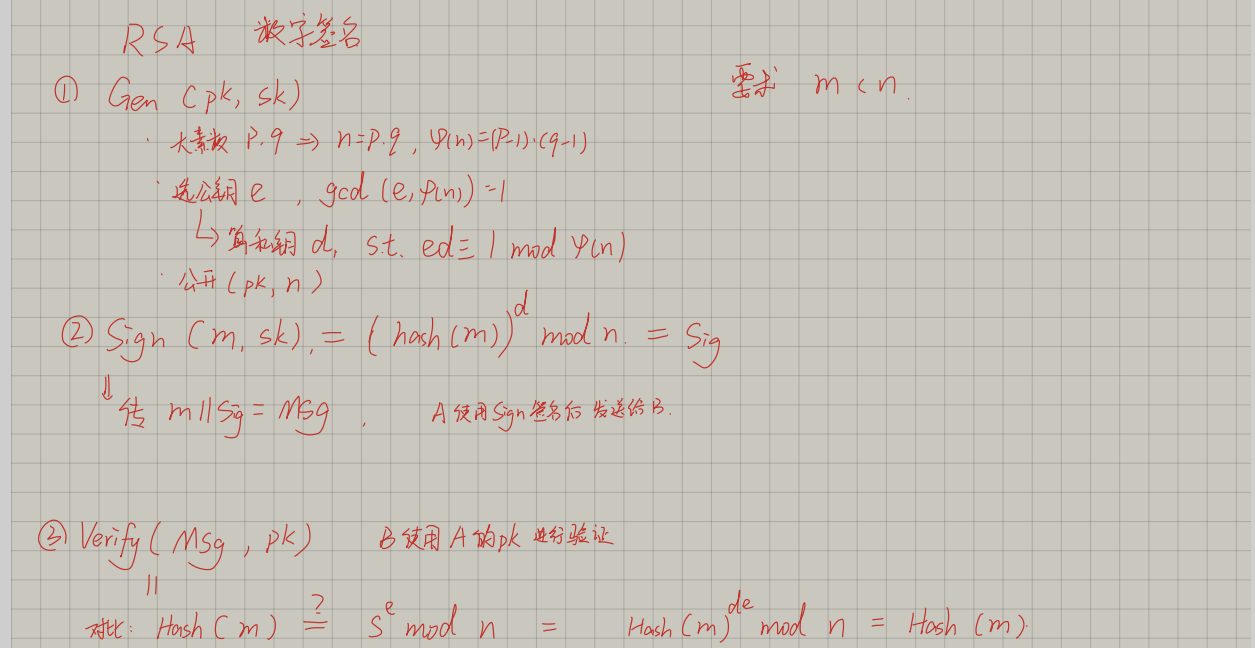 RSA 数字签名
① Gen (pk, sk)
需求 m < n.
· 大素数 P.q ⇒ n=P.q, φ(n)=(P-1)·(q-1)
· 选公钥 e , gcd (e, φ(n)) = 1
↳ 算私钥 d, s.t. ed ≡ 1 mod φ(n)
· 公开 (pk, n)
② Sign (m, sk), = (hash(m))^d mod n. = Sig
⇓
传 m || Sig = Msg , A 使用 Sign 签名后 发送给 B.
③ Verify (Msg, pk) B 使用 A 的 pk 进行验证
||
对比: Hash (m) =? S^e mod n = Hash (m)^de mod n = Hash (m).